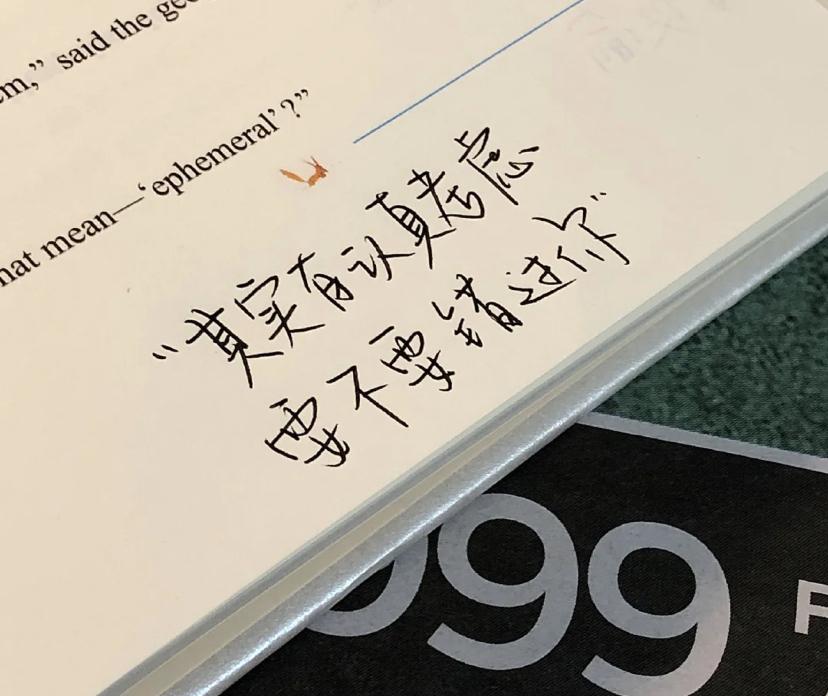 em,” said the ge
hat mean—‘ephemeral’?”
“其实有认真考虑
要不要错过你”
999